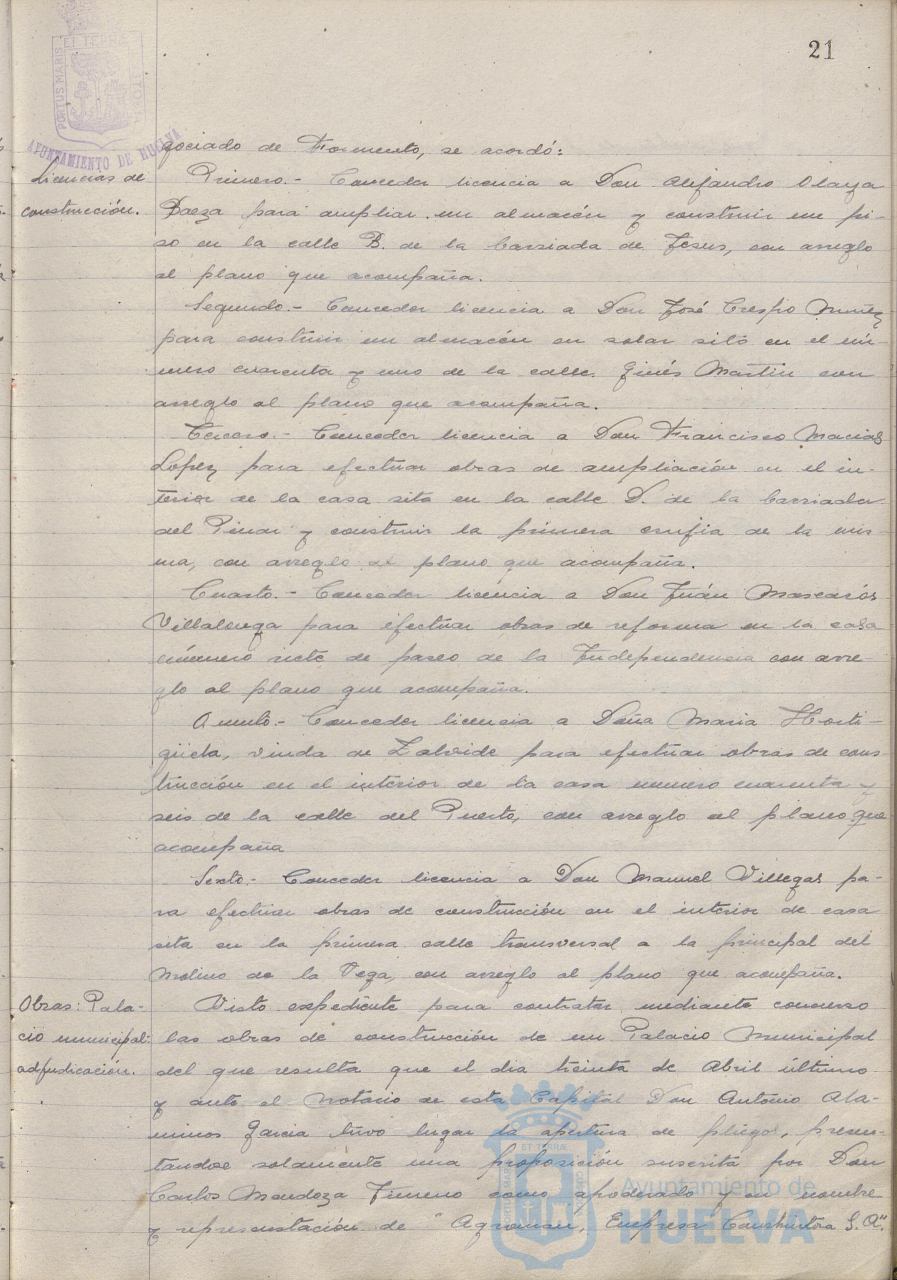 21
PORTUS MARIS ET TERRAE CUSTODIA
AYUNTAMIENTO DE HUELVA
gociado de Fomento, se acordó:
Licencias de
construcción.
Primero.- Conceder licencia a Don Alejandro Olaya
Baeza para ampliar un almacén y construir un pi-
so en la calle B. de la barriada de Jesus, con arreglo
al plano que acompaña.
Segundo.- Conceder licencia a Don José Crespo Nuñez
para construir un almacén en solar sito en el nú-
mero cuarenta y uno de la calle Ginés Martin con
arreglo al plano que acompaña.
Tercero.- Conceder licencia a Don Francisco Macias
Lopez para efectuar obras de ampliación en el in-
terior de la casa sita en la calle D. de la barriada
del Pinar y construir la primera crufia de la mis
ma, con arreglo al plano que acompaña.
Cuarto.- Conceder licencia a Don Juán Mascarós
Villalonga para efectuar obras de reforma en la casa
número siete de paseo de la Independencia con arre-
glo al plano que acompaña.
Quinto.- Conceder licencia a Doña Maria Horti-
güela, viuda de Zalvide para efectuar obras de cons-
trucción en el interior de la casa numero cuarenta y
seis de la calle del Puerto, con arreglo al plano que
acompaña
Sexto.- Conceder licencia a Don Manuel Villegas pa-
ra efectuar obras de construcción en el interior de casa
sita en la primera calle transversal a la principal del
Molino de la Vega, con arreglo al plano que acompaña.
Obras: Pala-
cio municipal:
adjudicación.
Visto expediente para contratar mediante concurso
las obras de construcción de un Palacio Municipal
del que resulta que el dia treinta de Abril último
y ante el Notario de esta Capital Don Antonio Ala-
minos Garcia tuvo lugar la apertura de pliegos, presen-
tandose solamente una proposición suscrita por Don
Carlos Mendoza Jimeno como apoderado y en nombre
y representación de "Agroman, Empresa Constructora S.A".
Ayuntamiento de
HUELVA